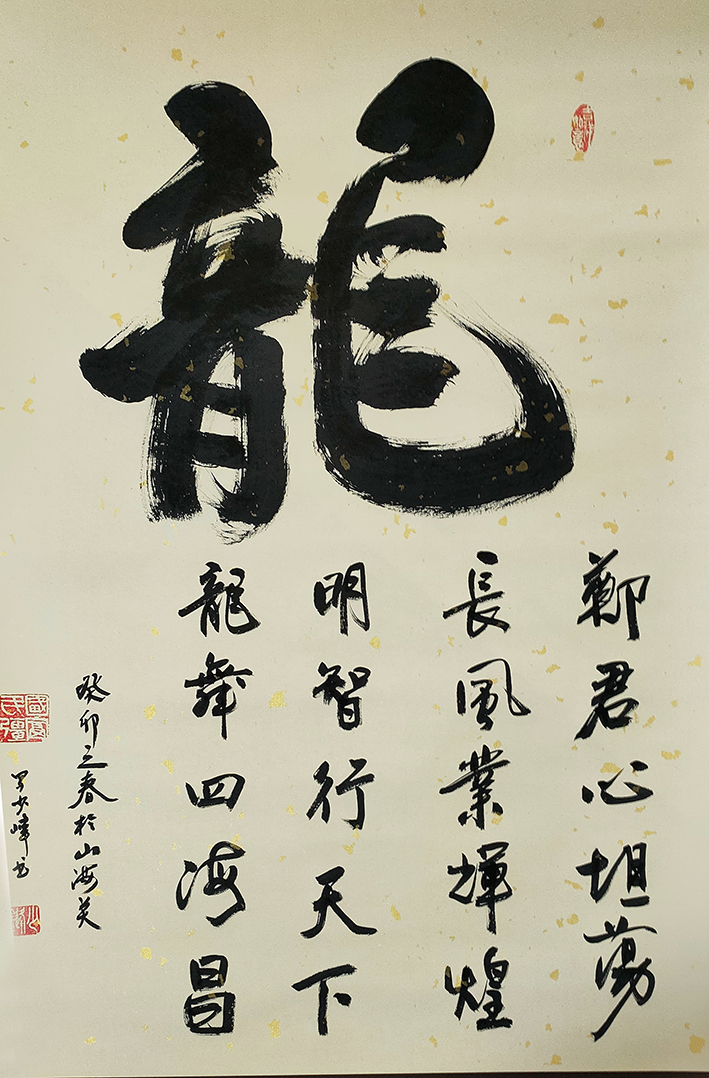 龍
鄭君心坦蕩
長風業輝煌
明智行天下
龍舞四海昌
癸卯之春於山海关
少峰书